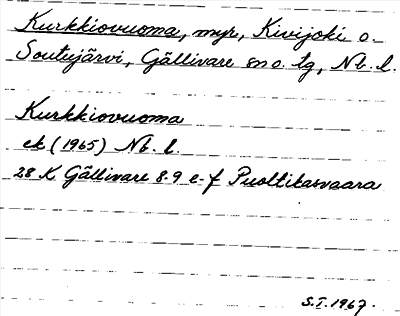 Kurkkiovuoma, myr, Kivijoki o.
Soutujärvi, Gällivare sn o. tg, Nb. l.
Kurkkiovuoma
ek (1965) Nb. l.
28 K Gällivare 8-9 e-f Puoltikasvaara
S.I. 1967.